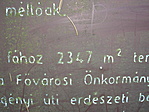 méltóak.
fához 2347 m² ter
a Fővárosi Önkormány
gényi úti erdészeti ba